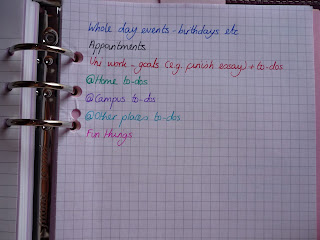 Whole day events - birthdays etc
Appointments
Uni work - goals (e.g. finish essay) + to-dos
@Home to-dos
@Campus to-dos
@Other places to-dos
Fun things